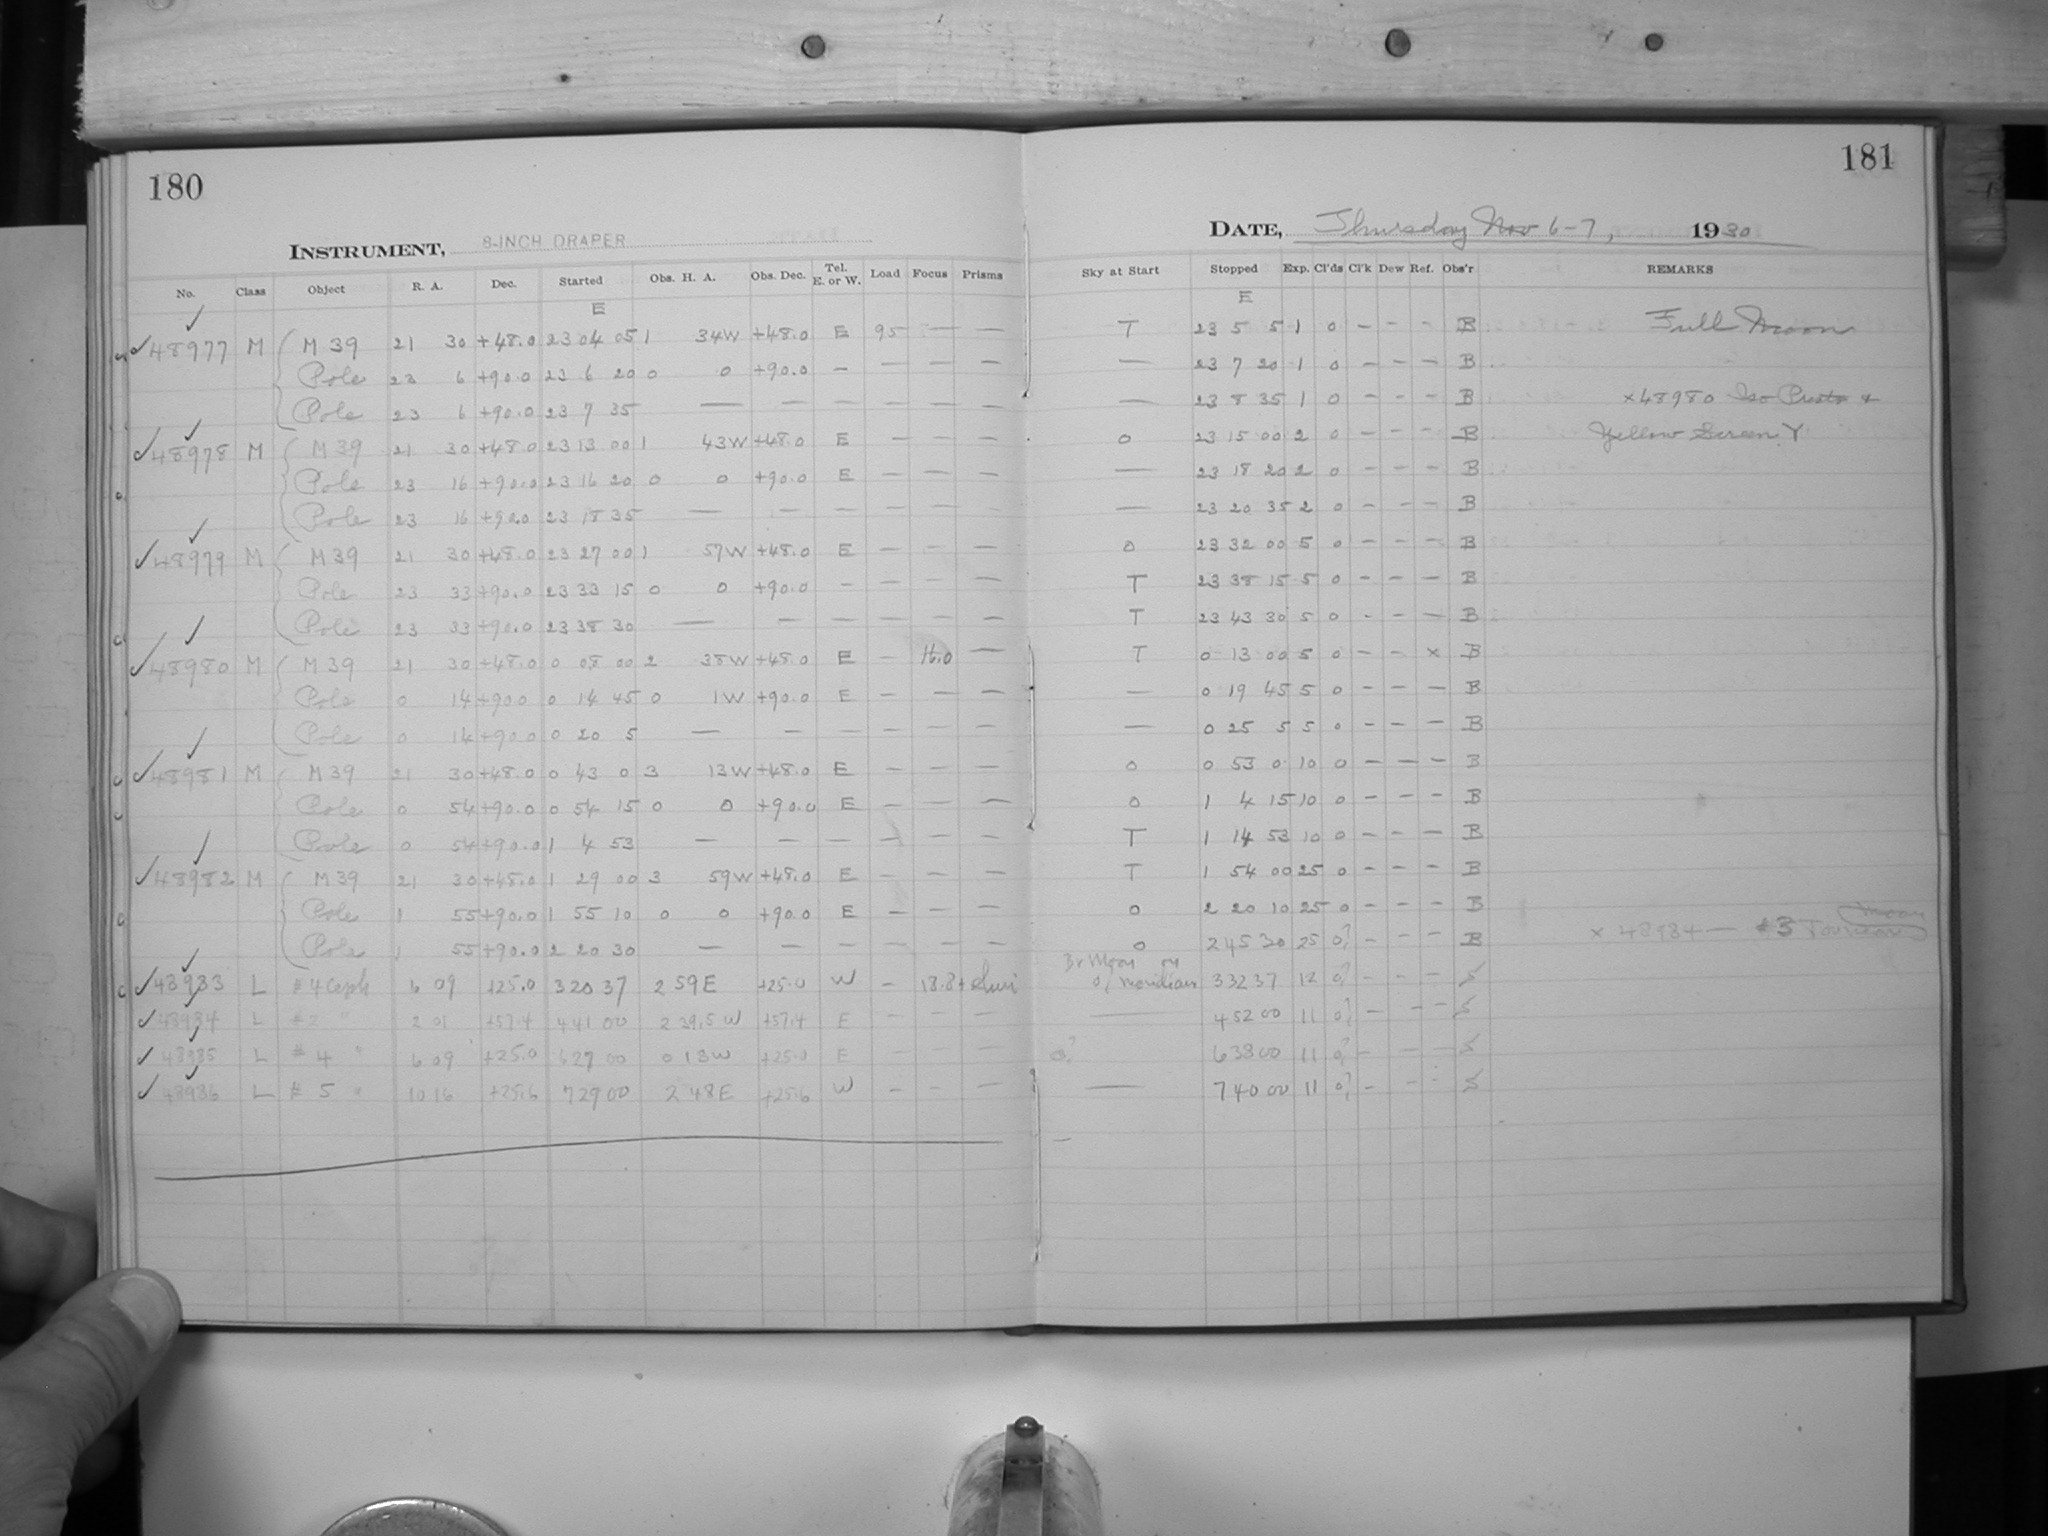 180
INSTRUMENT, 8-INCH DRAPER
No. Class Object R. A. Dec. Started Obs. H. A. Obs. Dec. Tel. E. or W. Load Focus Prisms
E
48977 M M 39 21 30 +48.0 23 04 05 1 34W +48.0 E 95 — —
Pole 23 6 +90.0 23 6 20 0 0 +90.0 — — — —
Pole 23 6 +90.0 23 7 35 — — — — — —
48978 M M 39 21 30 +48.0 23 13 00 1 43W +48.0 E — — —
Pole 23 16 +90.0 23 16 20 0 0 +90.0 E — — —
Pole 23 16 +90.0 23 18 35 — — — — — —
48979 M M 39 21 30 +48.0 23 27 00 1 57W +48.0 E — — —
Pole 23 33 +90.0 23 33 15 0 0 +90.0 — — — —
Pole 23 33 +90.0 23 38 30 — — — — — —
48980 M M 39 21 30 +48.0 0 08 00 2 38W +48.0 E — 16.0 —
Pole 0 14 +90.0 0 14 45 0 1W +90.0 E — — —
Pole 0 14 +90.0 0 20 5 — — — — — —
48981 M M 39 21 30 +48.0 0 43 0 3 13W +48.0 E — — —
Pole 0 54 +90.0 0 54 15 0 0 +90.0 E — — —
Pole 0 54 +90.0 1 4 53 — — — — — —
48982 M M 39 21 30 +48.0 1 29 00 3 59W +48.0 E — — —
Pole 1 55 +90.0 1 55 10 0 0 +90.0 E — — —
Pole 1 55 +90.0 2 20 30 — — — — — —
48983 L #4 Ceph 6 09 +25.0 3 20 37 2 59E +25.0 W — 18.8+
48984 L #2 " 2 01 +57.4 4 41 00 2 39.5W +57.4 E — — —
48985 L #4 " 6 09 +25.0 6 27 00 0 18W +25.0 E — — —
48986 L #5 " 10 16 +25.6 7 29 00 2 48E +25.6 W — — —
181
DATE, Thursday Nov 6-7, 1930
Sky at Start Stopped Exp. Cl'ds Cl'k Dew Ref. Obs'r REMARKS
E
T 23 5 5 1 0 — — — B Full Moon
— 23 7 20 1 0 — — — B
— 23 8 35 1 0 — — — B ×48980 Iso Presto &
0 23 15 00 2 0 — — — B Yellow Screen Y
— 23 18 20 2 0 — — — B
— 23 20 35 2 0 — — — B
0 23 32 00 5 0 — — — B
T 23 38 15 5 0 — — — B
T 23 43 30 5 0 — — — B
T 0 13 00 5 0 — — × B
— 0 19 45 5 0 — — — B
— 0 25 5 5 0 — — — B
0 0 53 0 10 0 — — — B
0 1 4 15 10 0 — — — B
T 1 14 53 10 0 — — — B
T 1 54 00 25 0 — — — B
0 2 20 10 25 0 — — — B
0 2 45 30 25 0? — — — B × 48984 — #3 Moon
Br Moon on
0, meridian 3 32 37 12 0? — — — S
— 4 52 00 11 0? — — — S
0? 6 38 00 11 0? — — — S
— 7 40 00 11 0? — — — S